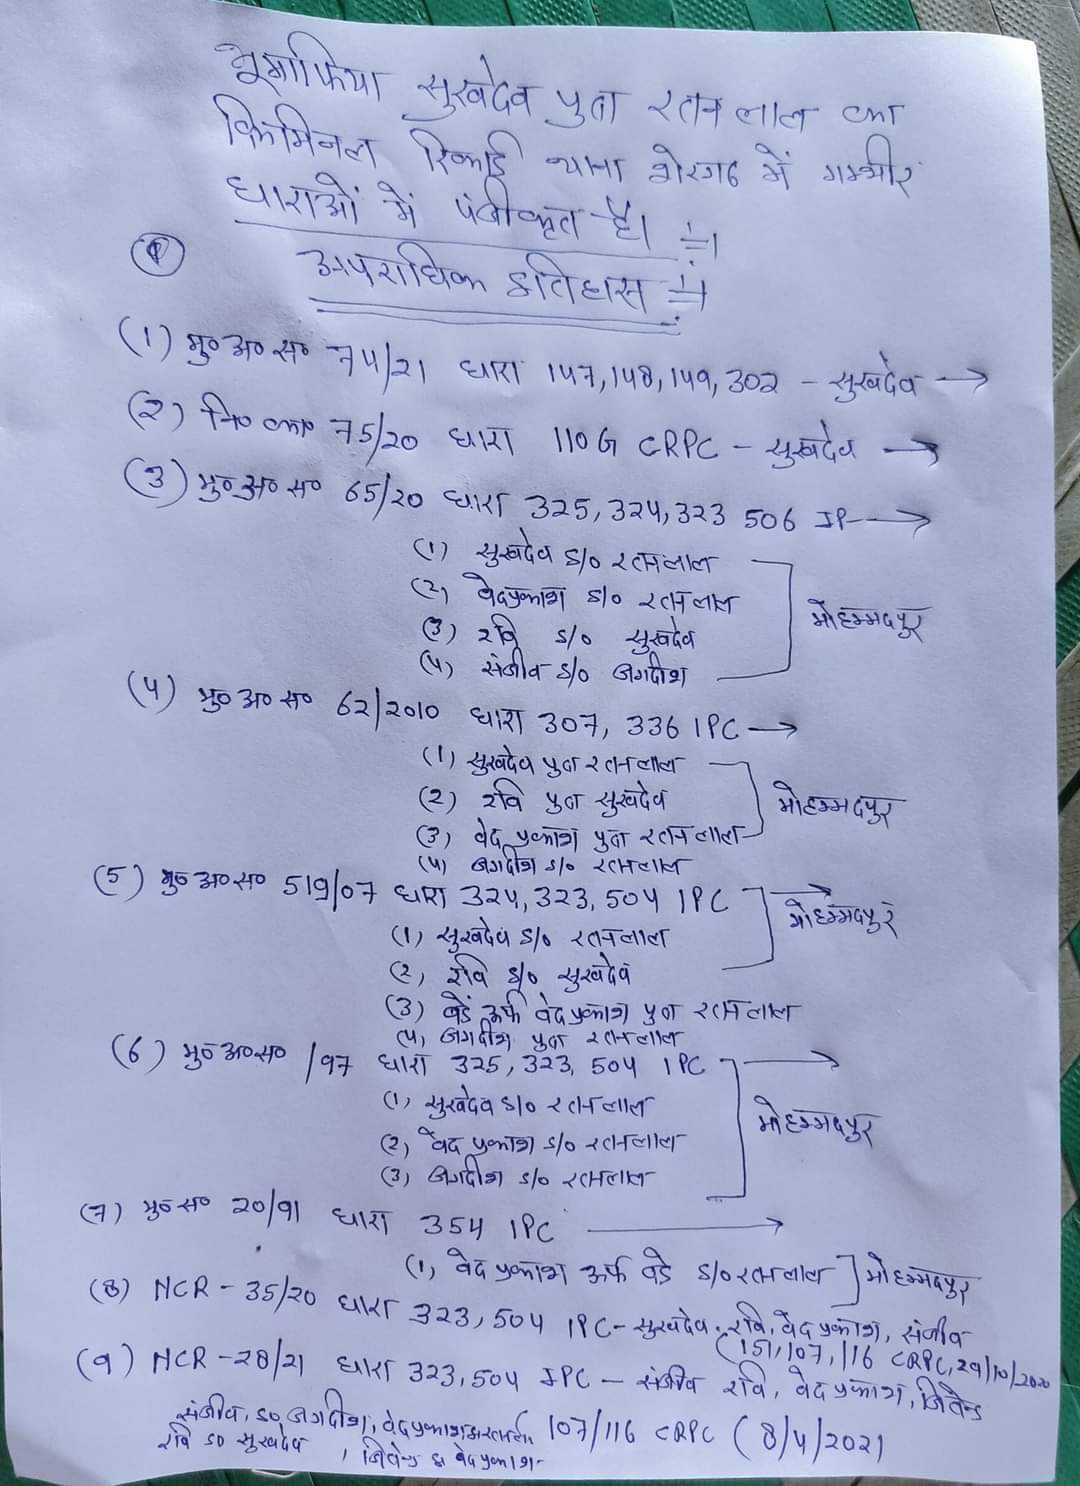 भूमाफिया सुखदेव पुत्र रतन लाल का
क्रिमिनल रिकार्ड थाना शेरगढ में गम्भीर
धाराओं में पंजीकृत है। ÷।
अपराधिक इतिहास ÷।
(1) मु० अ० स० 74/21 धारा 147,148,149,302 - सुखदेव →
(2) नि० का० 75/20 धारा 110 G CRPC - सुखदेव →
(3) मु० अ० स० 65/20 धारा 325,324,323 506 IP →
(1) सुखदेव S/o रतनलाल
(2) वेदप्रकाश S/o रतनलाल
(3) रवि S/o सुखदेव
मोहम्मदपुर
(4) संजीव S/o जगदीश
(4) मु० अ० स० 62/2010 धारा 307, 336 IPC →
(1) सुखदेव पुत्र रतनलाल
(2) रवि पुत्र सुखदेव
मोहम्मदपुर
(3) वेद प्रकाश पुत्र रतनलाल
(4) जगदीश S/o रतनलाल
(5) मु० अ० स० 519/07 धारा 324,323,504 IPC →
मोहम्मदपुर
(1) सुखदेव S/o रतनलाल
(2) रवि S/o सुखदेव
(3) बडे उर्फ वेदप्रकाश पुत्र रतनलाल
(4) जगदीश पुत्र रतनलाल
(6) मु० अ० स० /97 धारा 325,323,504 IPC →
(1) सुखदेव S/o रतनलाल
मोहम्मदपुर
(2) वेद प्रकाश S/o रतनलाल
(3) जगदीश S/o रतनलाल
(7) मु० स० 20/91 धारा 354 IPC →
(1) वेद प्रकाश उर्फ बडे S/o रतनलाल ] मोहम्मदपुर
(8) NCR - 35/20 धारा 323,504 IPC - सुखदेव, रवि, वेदप्रकाश, संजीव
(151,107,116 CRPC, 29/10/2020
(9) NCR - 28/21 धारा 323,504 IPC - संजीव रवि, वेद प्रकाश, जितेन्द्र
संजीव, SO जगदीश, वेदप्रकाश 107/116 CRPC (8/4/2021
रवि SO सुखदेव , जितेन्द्र S वेदप्रकाश